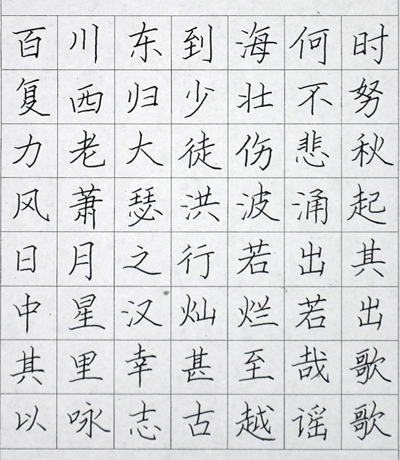 百川东到海何时
复西归少壮不努
力老大徒伤悲秋
风萧瑟洪波涌起
日月之行若出其
中星汉灿烂若出
其里幸甚至哉歌
以咏志古越谣歌